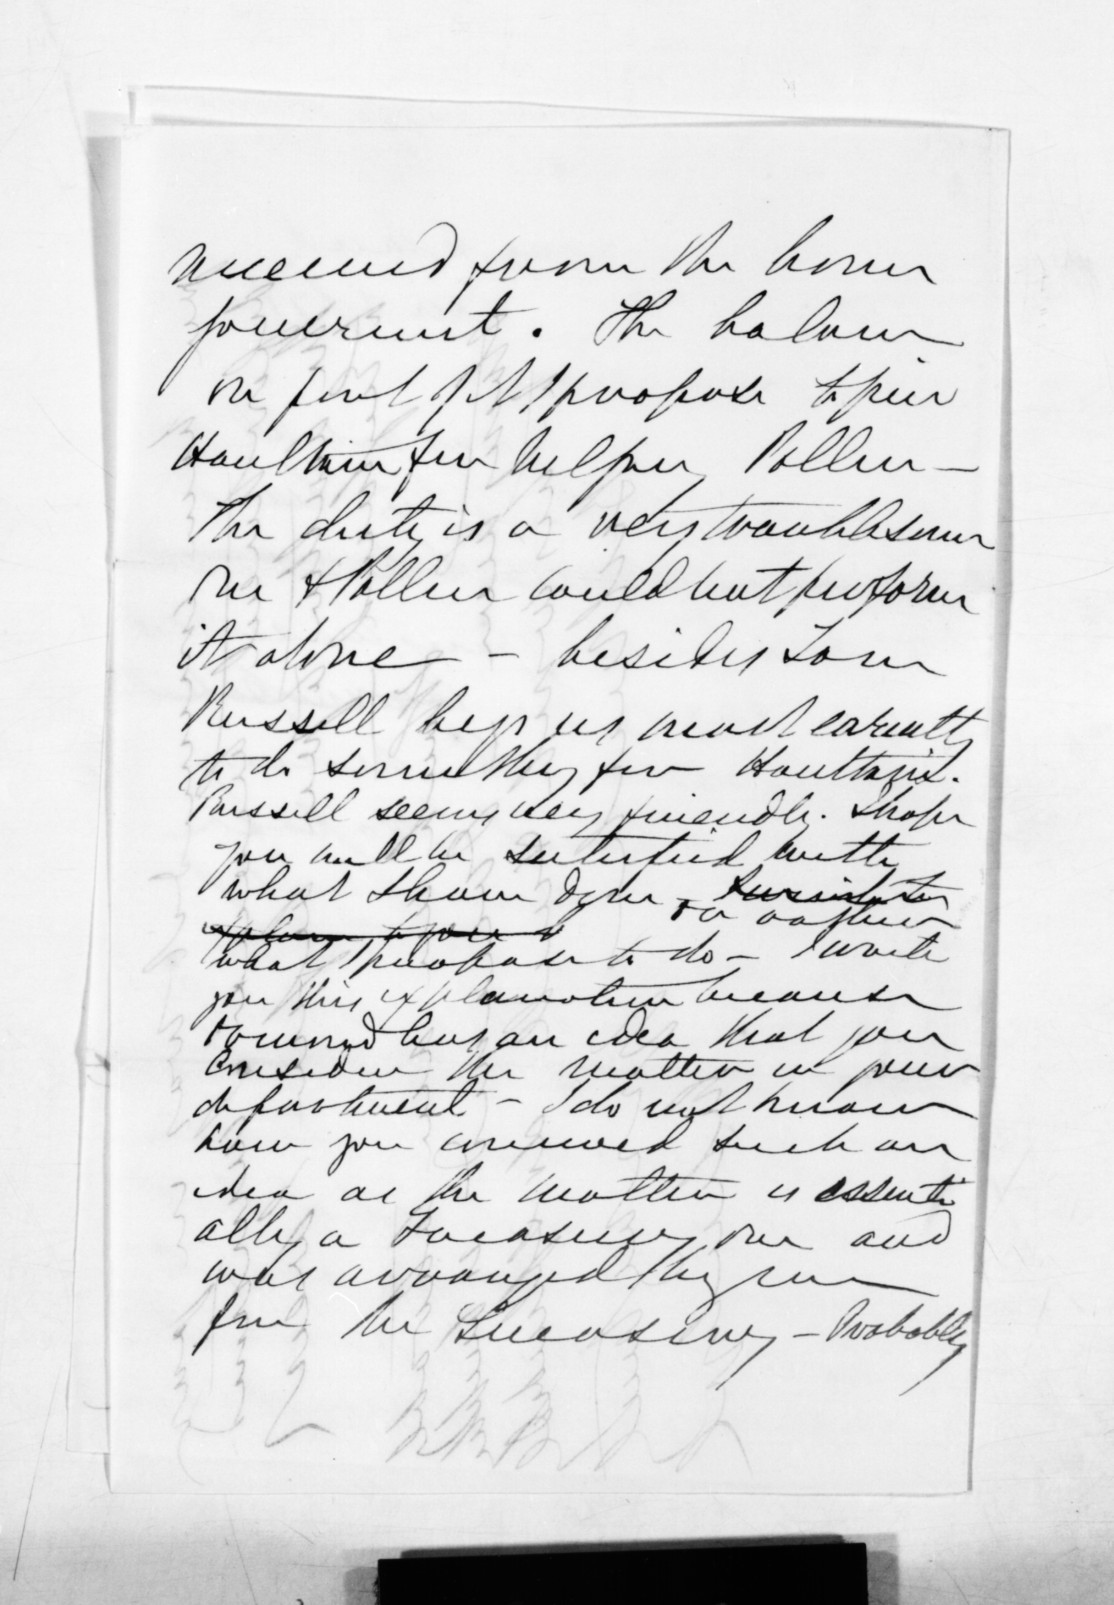 received from the home
government. The balance
or part of it I propose to give
Haultain for helping Pollen —
The duty is a very troublesome
one & Pollen could not perform
it alone — besides Tom
Russell begs us most earnestly
to do something for Haultain.
Russell seems very friendly. I hope
you will be satisfied with
what I have done
or rather
what I propose to do — I write
you this explanation because
Ormond has an idea that you
consider the matter in your
department — I do not know
how you conceived such an
idea as the matter is essenti
ally a Treasury one and
was arranged by me
for the Treasury — Probably